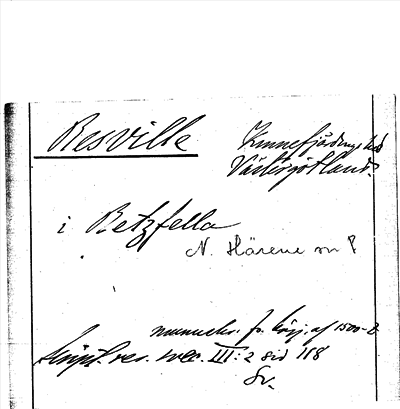 Resville
Kinnefjärdings hd
Västergötland?
i Betzfella
N. Härene sn?
manuskr. fr. börj. af 1500-t.
Script. rer. svec. III: 2 sid 118
Sv.